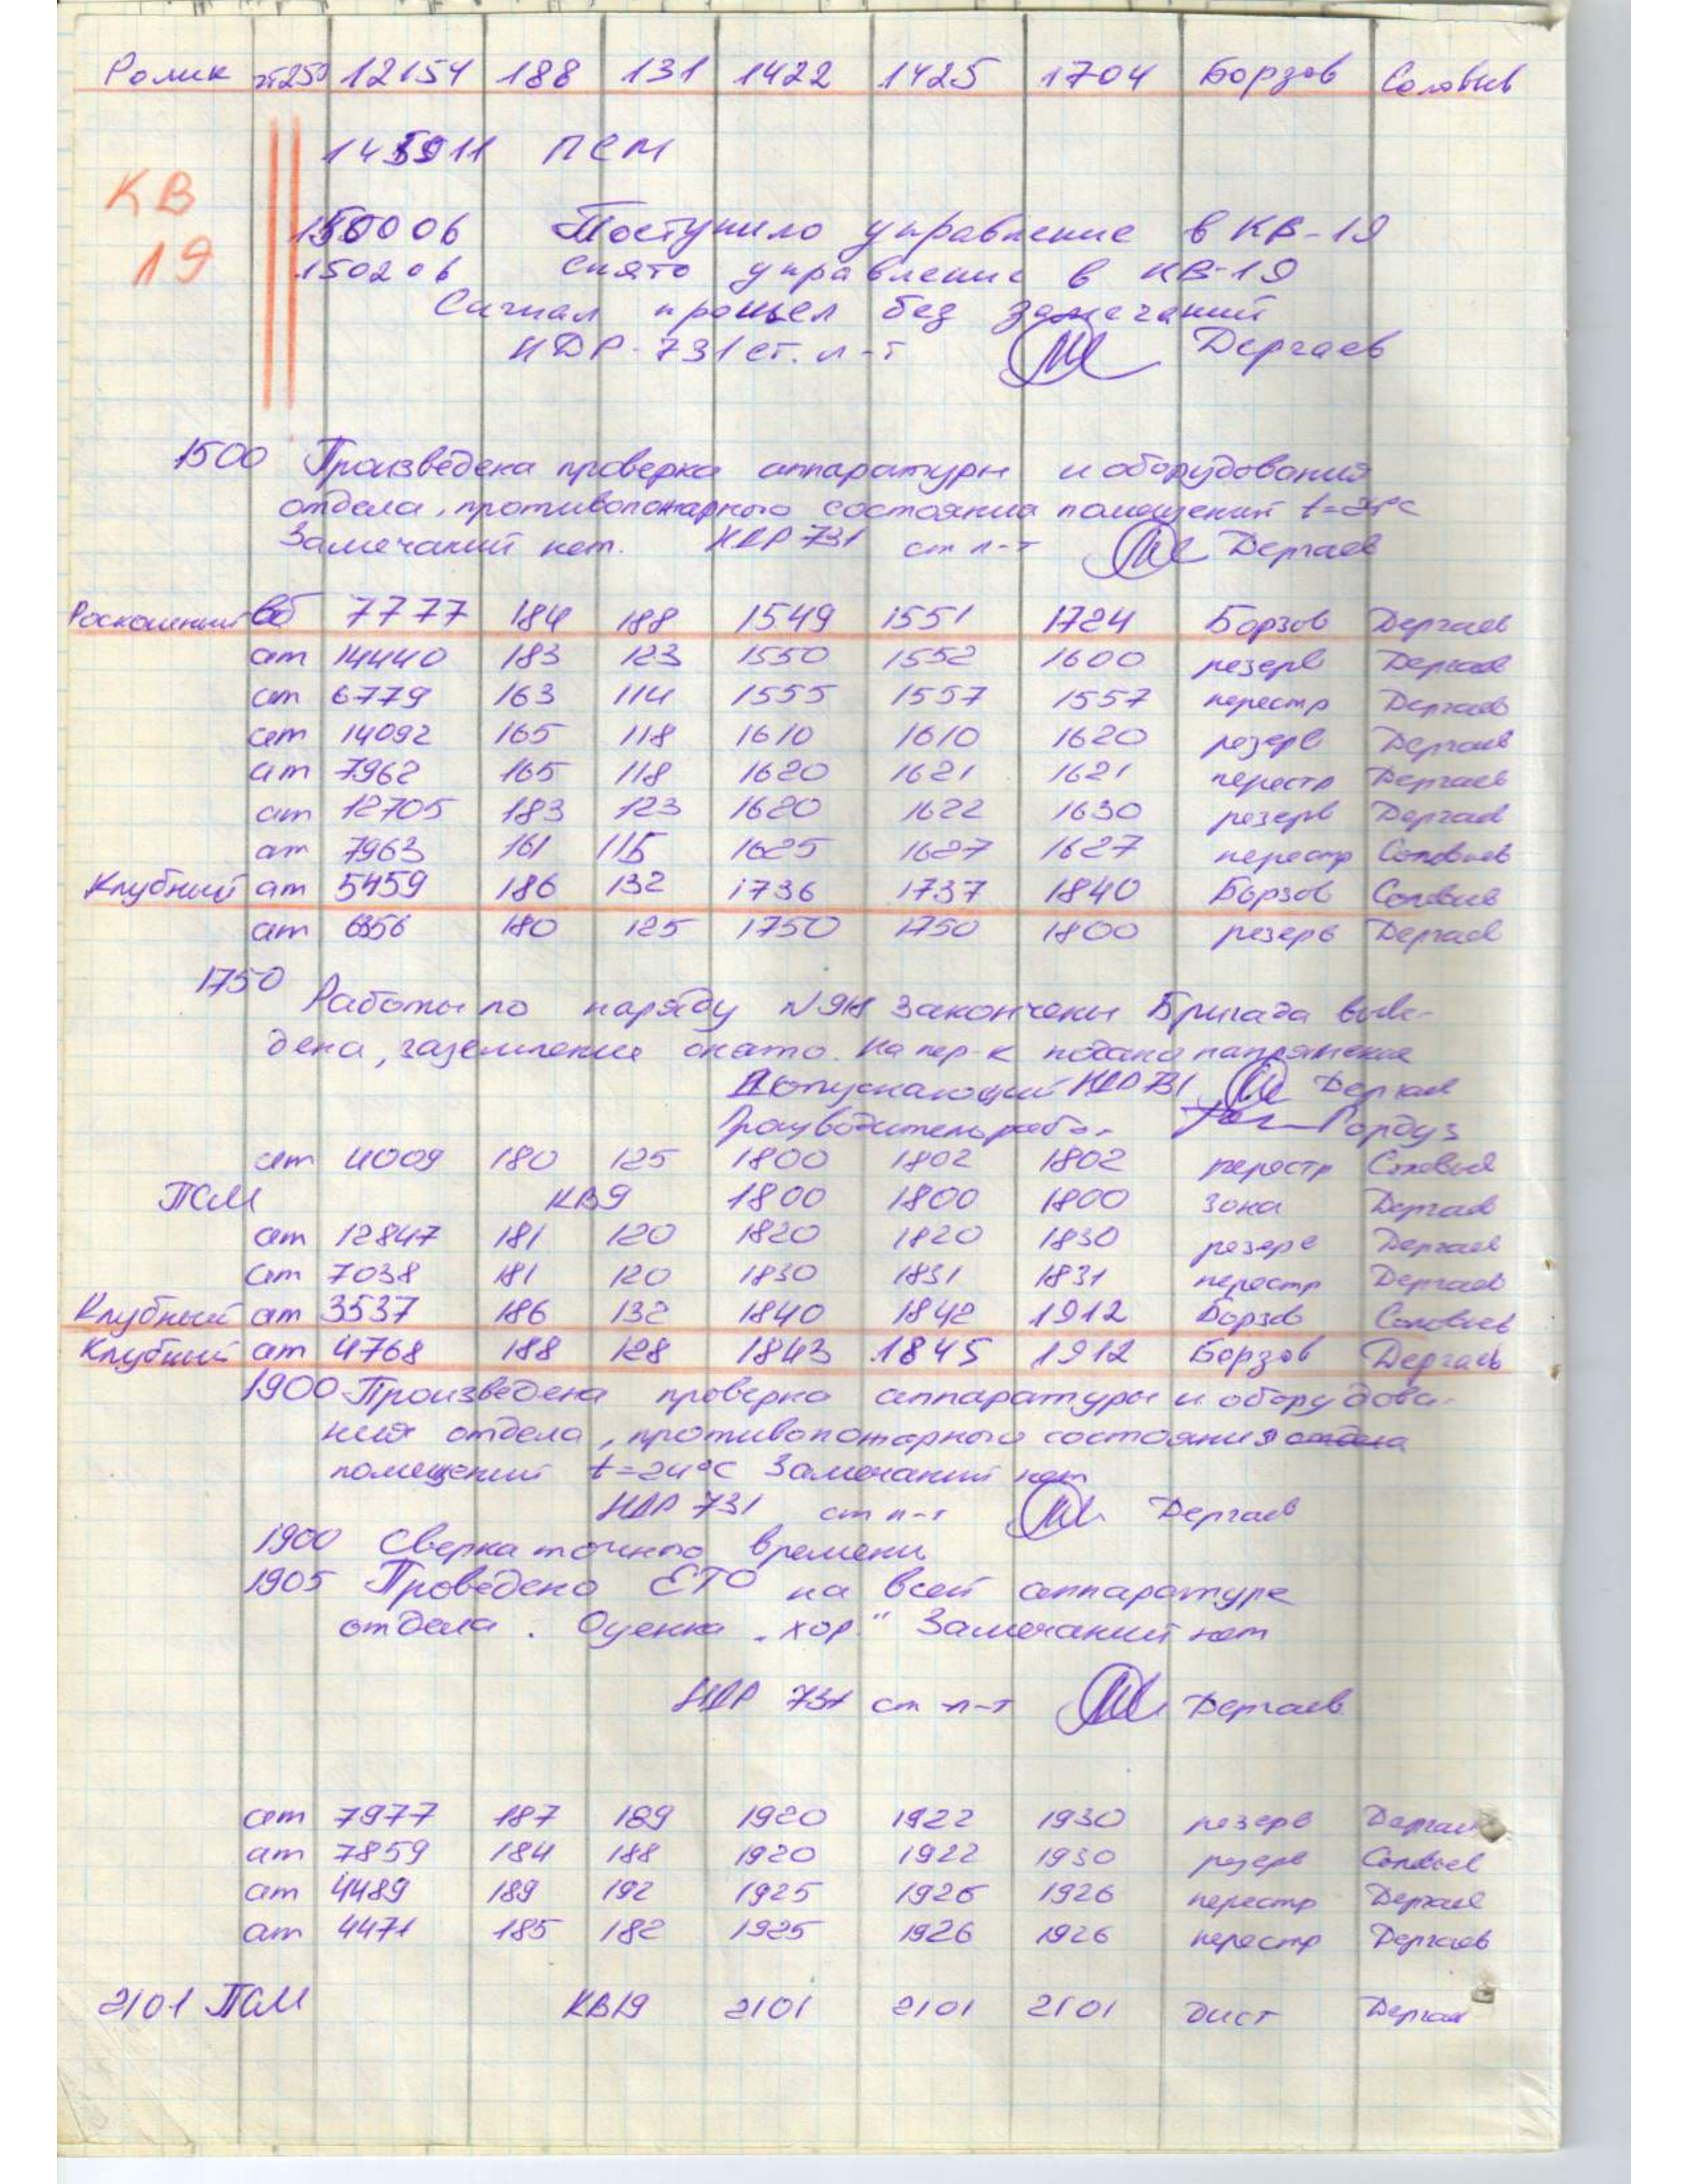 Ролик пт250 12154 188 131 1422 1425 1704 Борзов Соловьев
145911 ПСМ
КВ
19
150006 Поступило управление в КВ-19
150206 Снято управление в КВ-19
Сигнал прошел без замечаний
НДР-731 ст. л-т Дергаев
1500 Произведена проверка аппаратуры и оборудования
отдела, противопожарного состояния помещений
Замечаний нет. НДР 731 ст л-т Дергаев
Роскошный вб 7777 184 188 1549 1551 1724 Борзов Дергаев
ат 14440 183 123 1550 1552 1600 резерв Дергаев
ат 6779 163 114 1555 1557 1557 перестр Дергаев
ат 14092 165 118 1610 1610 1620 резерв Дергаев
ат 7962 165 118 1620 1621 1621 перестр Дергаев
ат 12705 183 123 1620 1622 1630 резерв Дергаев
ат 7963 161 115 1625 1627 1627 перестр Соловьев
Клубный ат 5459 186 132 1736 1737 1840 Борзов Соловьев
ат 6356 180 125 1750 1750 1800 резерв Дергаев
1750 Работы по наряду закончены Бригада выве-
дена, заземление снято. На пер-к подано напряжение
Допускающий НДР 731 Дергаев
Производитель рабо- Гордуз
ат 4009 180 125 1800 1802 1802 перестр Соловьев
ПСМ КВ9 1800 1800 1800 зона Дергаев
ат 12847 181 120 1820 1820 1830 резерв Дергаев
ат 7038 181 120 1830 1831 1831 перестр Дергаев
Клубный ат 3537 186 132 1840 1842 1912 Борзов Соловьев
Клубный ат 4768 188 128 1843 1845 1912 Борзов Дергаев
1900 Произведена проверка аппаратуры и оборудова-
ния отдела, противопожарного состояния отдела
помещений t=24°С Замечаний нет
НДР 731 ст л-т Дергаев
1900 Сверка точного времени
1905 Проведено ЕТО на всей аппаратуре
отдела. Оценка „хор." Замечаний нет
НДР 731 ст л-т Дергаев
ат 7977 187 189 1920 1922 1930 резерв Дергаев
ат 7859 184 188 1920 1922 1930 резерв Соловьев
ат 4489 189 192 1925 1926 1926 перестр Дергаев
ат 4471 185 182 1925 1926 1926 перестр Дергаев
2101 ПСМ КВ19 2101 2101 2101 дист Дергаев